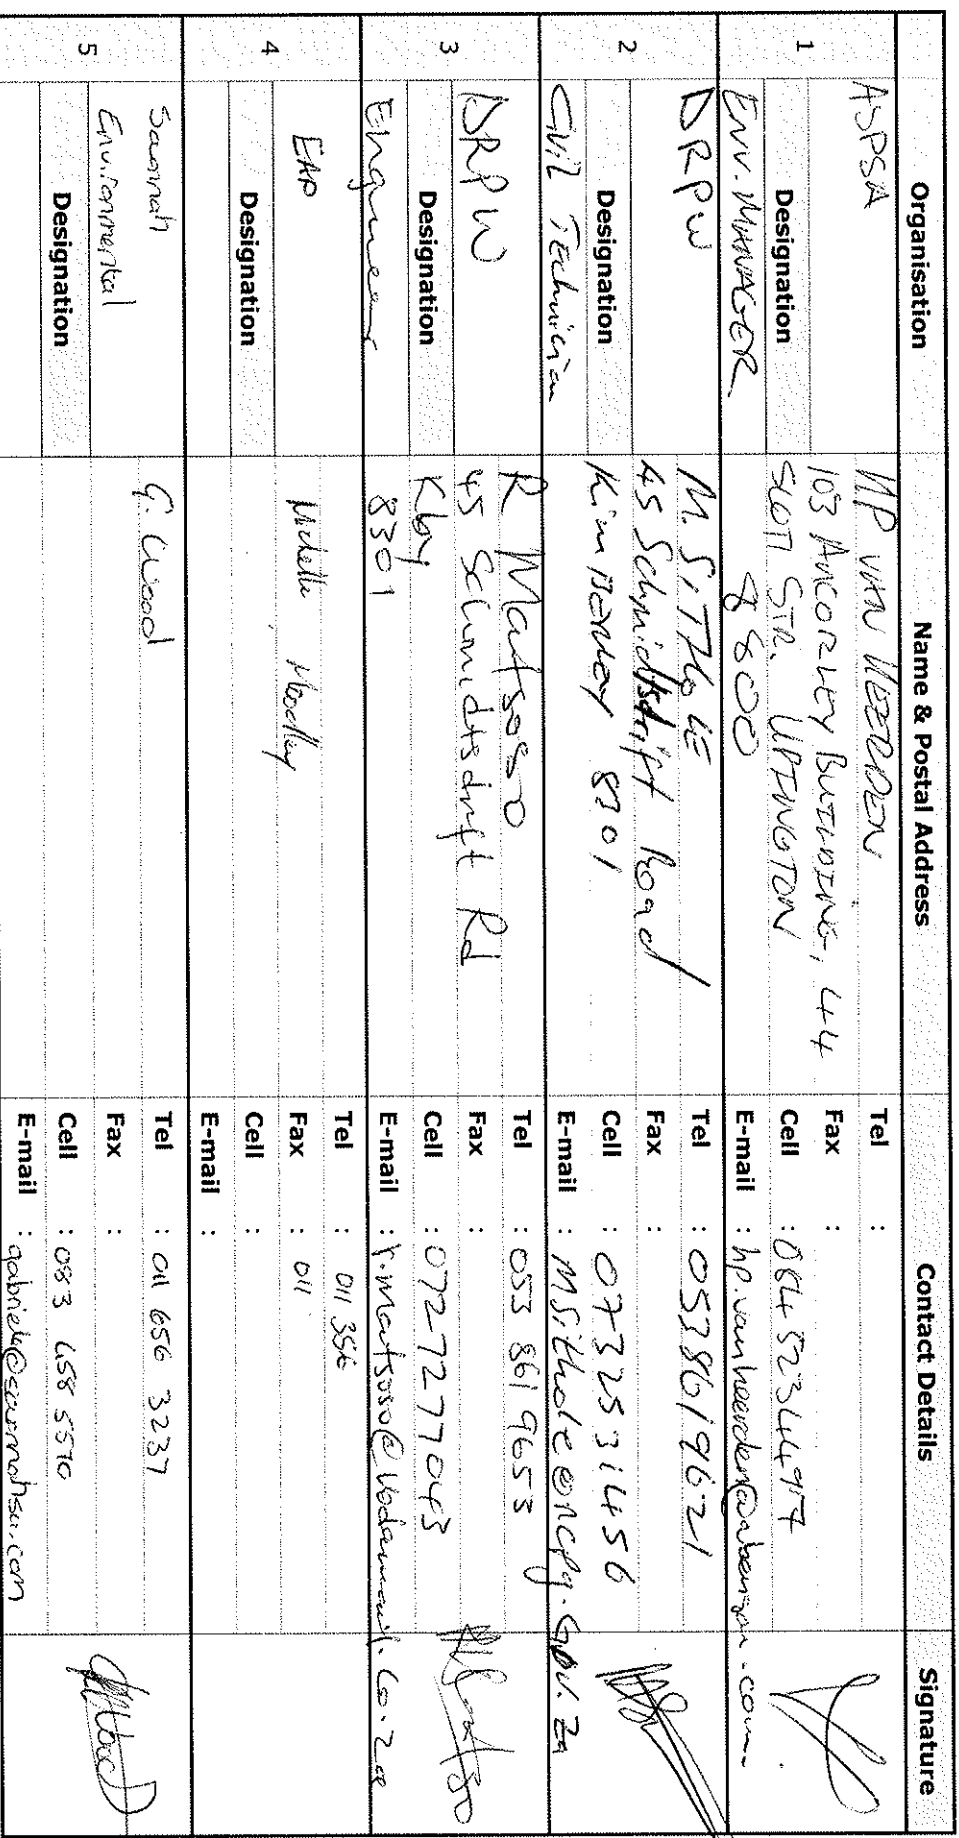 Organisation Name & Postal Address Contact Details Signature
1
ASPSA
Designation
ENV. MANAGER
HP VAN HEERDEN
103 ANCORLEY BUILDING, 44
SCOTT STR. UPINGTON
8800
Tel :
Fax :
Cell : 084 5234497
E-mail : hp.vanheerden@abengoa.com
2
DRPW
Designation
Civil Technician
M. SITHOLE
45 Schmidtsdrift Road
Kimberley 8301
Tel : 053 8619621
Fax :
Cell : 0732531456
E-mail : MSithole@ncpg.gov.za
3
DRPW
Designation
Engineer
R Matsoso
45 Schmidtsdrift Rd
Kby
8301
Tel : 053 861 9653
Fax :
Cell : 0727277043
E-mail : r.matsoso@vodamail.co.za
4
EAP
Designation
Michelle Moodley
Tel : 011 356
Fax : 011
Cell :
E-mail :
5
Savannah
Environmental
Designation
G. Wood
Tel : 011 656 3237
Fax :
Cell : 083 458 5570
E-mail : gabriele@savannahsa.com